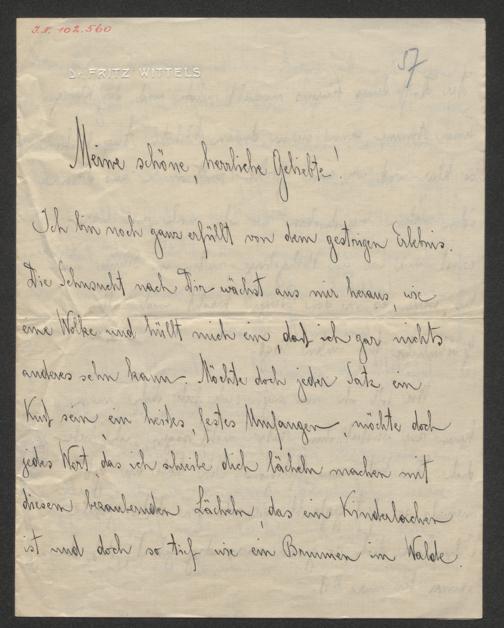 I.N. 102.560
57
Dr. FRITZ WITTELS
Meine schöne, herrliche Geliebte!
Ich bin noch ganz erfüllt von dem gestrigen Erlebnis.
Die Sehnsucht nach Dir wächst aus mir heraus, wie
eine Wolke und hüllt mich ein, daß ich gar nichts
anderes sehn kann. Möchte doch jeder Satz ein
Kuß sein, ein heißes, festes Umfangen, möchte doch
jedes Wort, das ich schreibe dich lächeln machen mit
diesem bezaubernden Lächeln, das ein Kinderlachen
ist und doch so tief wie ein Brunnen im Walde.